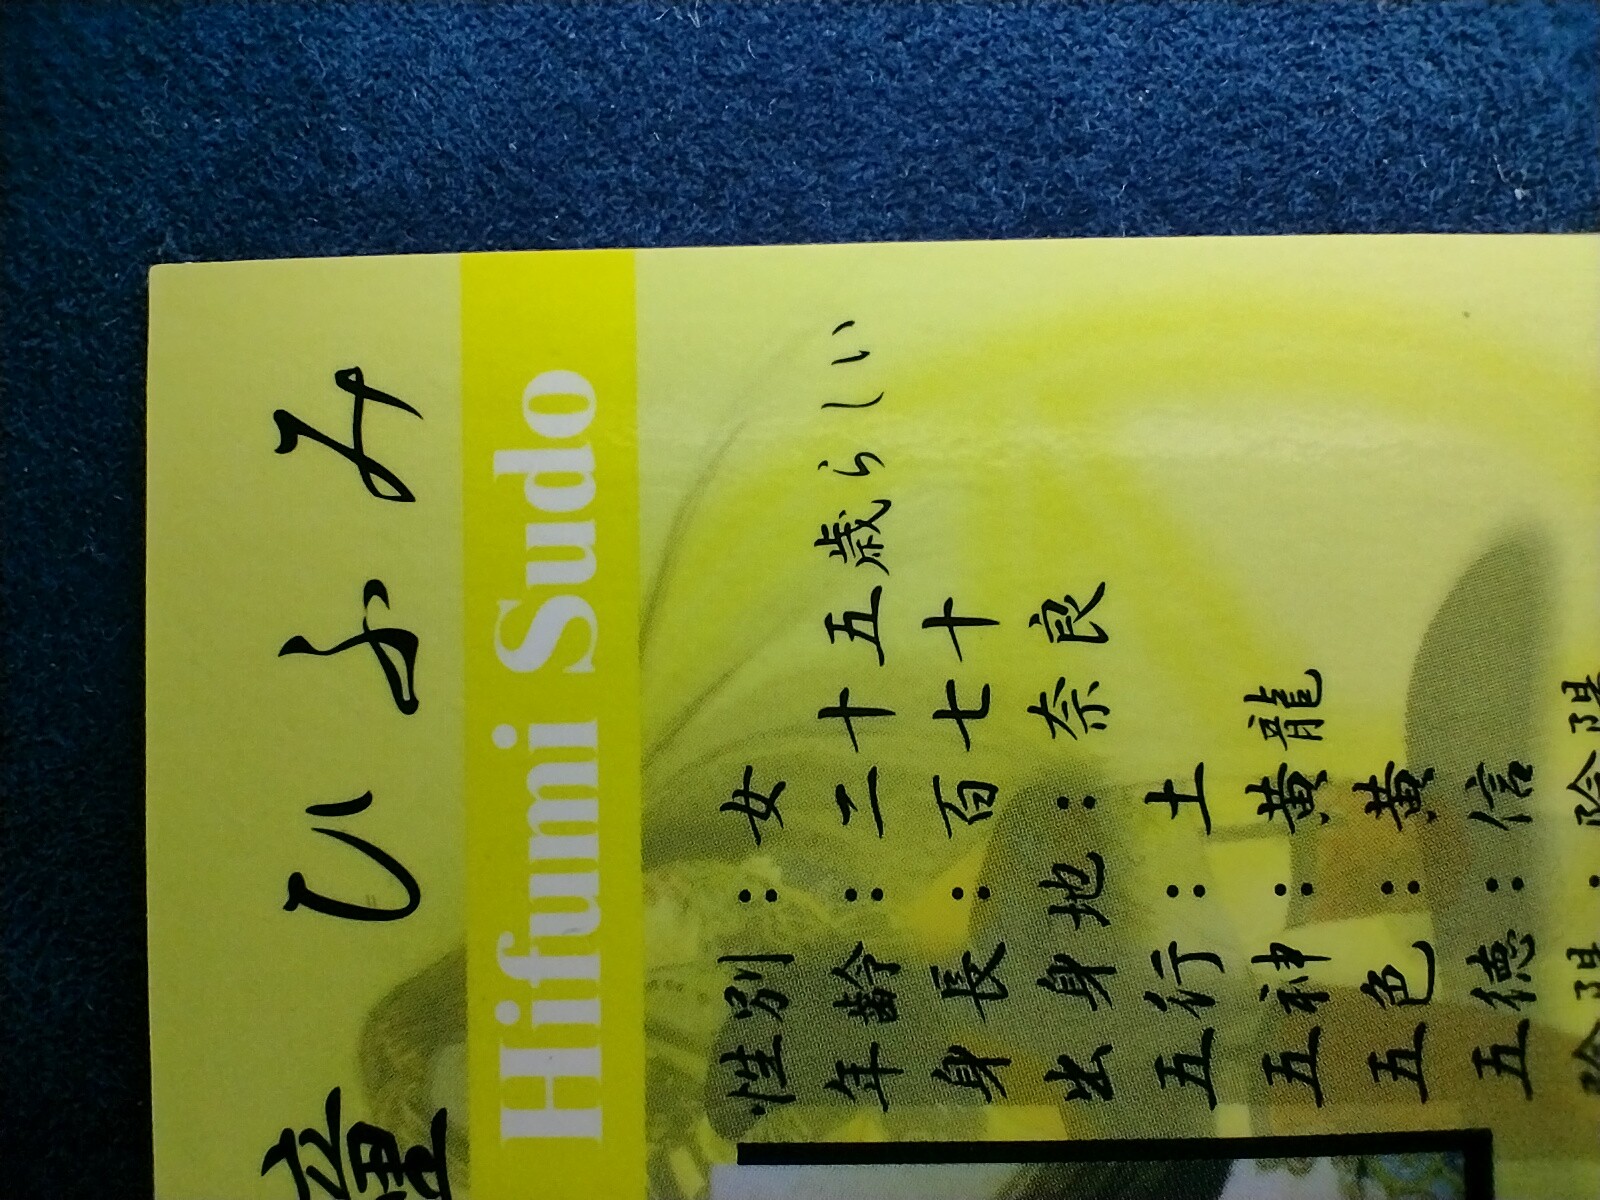 ひふみ
Hifumi Sudo
性別：女
年齢：二十五歳らしい
身長：百七十
出身地：奈良
五行：土
五神：黄龍
五色：黄
五徳：信